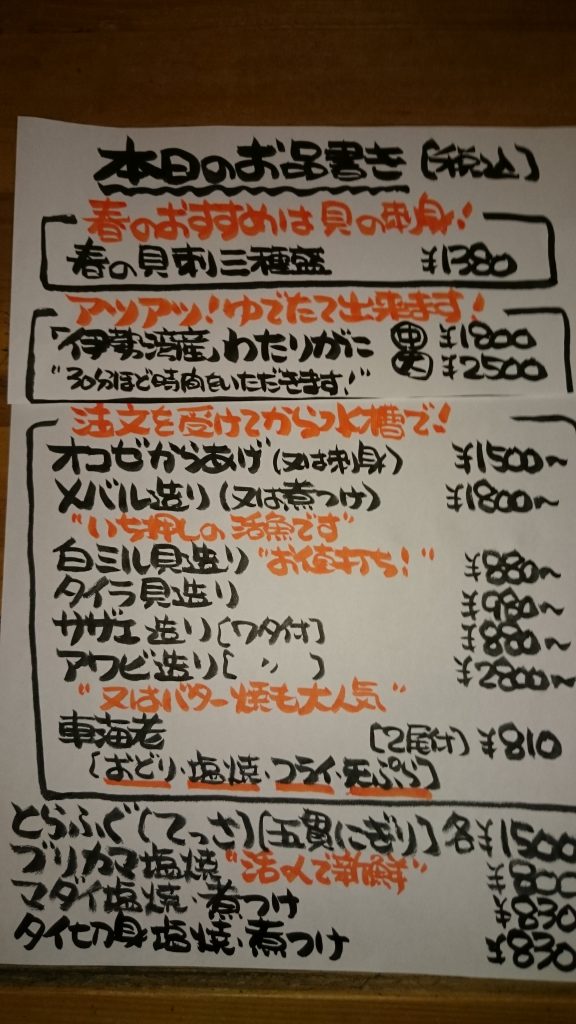 本日のお品書き [税込]
春のおすすめは貝の刺身!
春の貝刺三種盛 ¥1380
アツアツ!ゆでたて出来ます!
「伊勢湾産」わたりがに 中 ¥1800
大 ¥2500
"30分ほど時間をいただきます!"
注文を受けてから水槽で!
オコゼからあげ(又は刺身) ¥1500~
メバル造り(又は煮つけ) ¥1800~
"いち押しの活魚です"
白ミル貝造り "お値打ち!" ¥880~
タイラ貝造り ¥980~
サザエ造り[ワタ付] ¥880~
アワビ造り[ 〃 ] ¥2800~
"又はバター焼も大人気"
車海老 [2尾付] ¥810
[おどり・塩焼・フライ・天ぷら]
とらふぐ(てっさ)[五貫にぎり] 各¥1500
ブリカマ塩焼 "活〆で新鮮" ¥800
マダイ塩焼・煮つけ ¥830
タイ切身塩焼・煮つけ ¥830